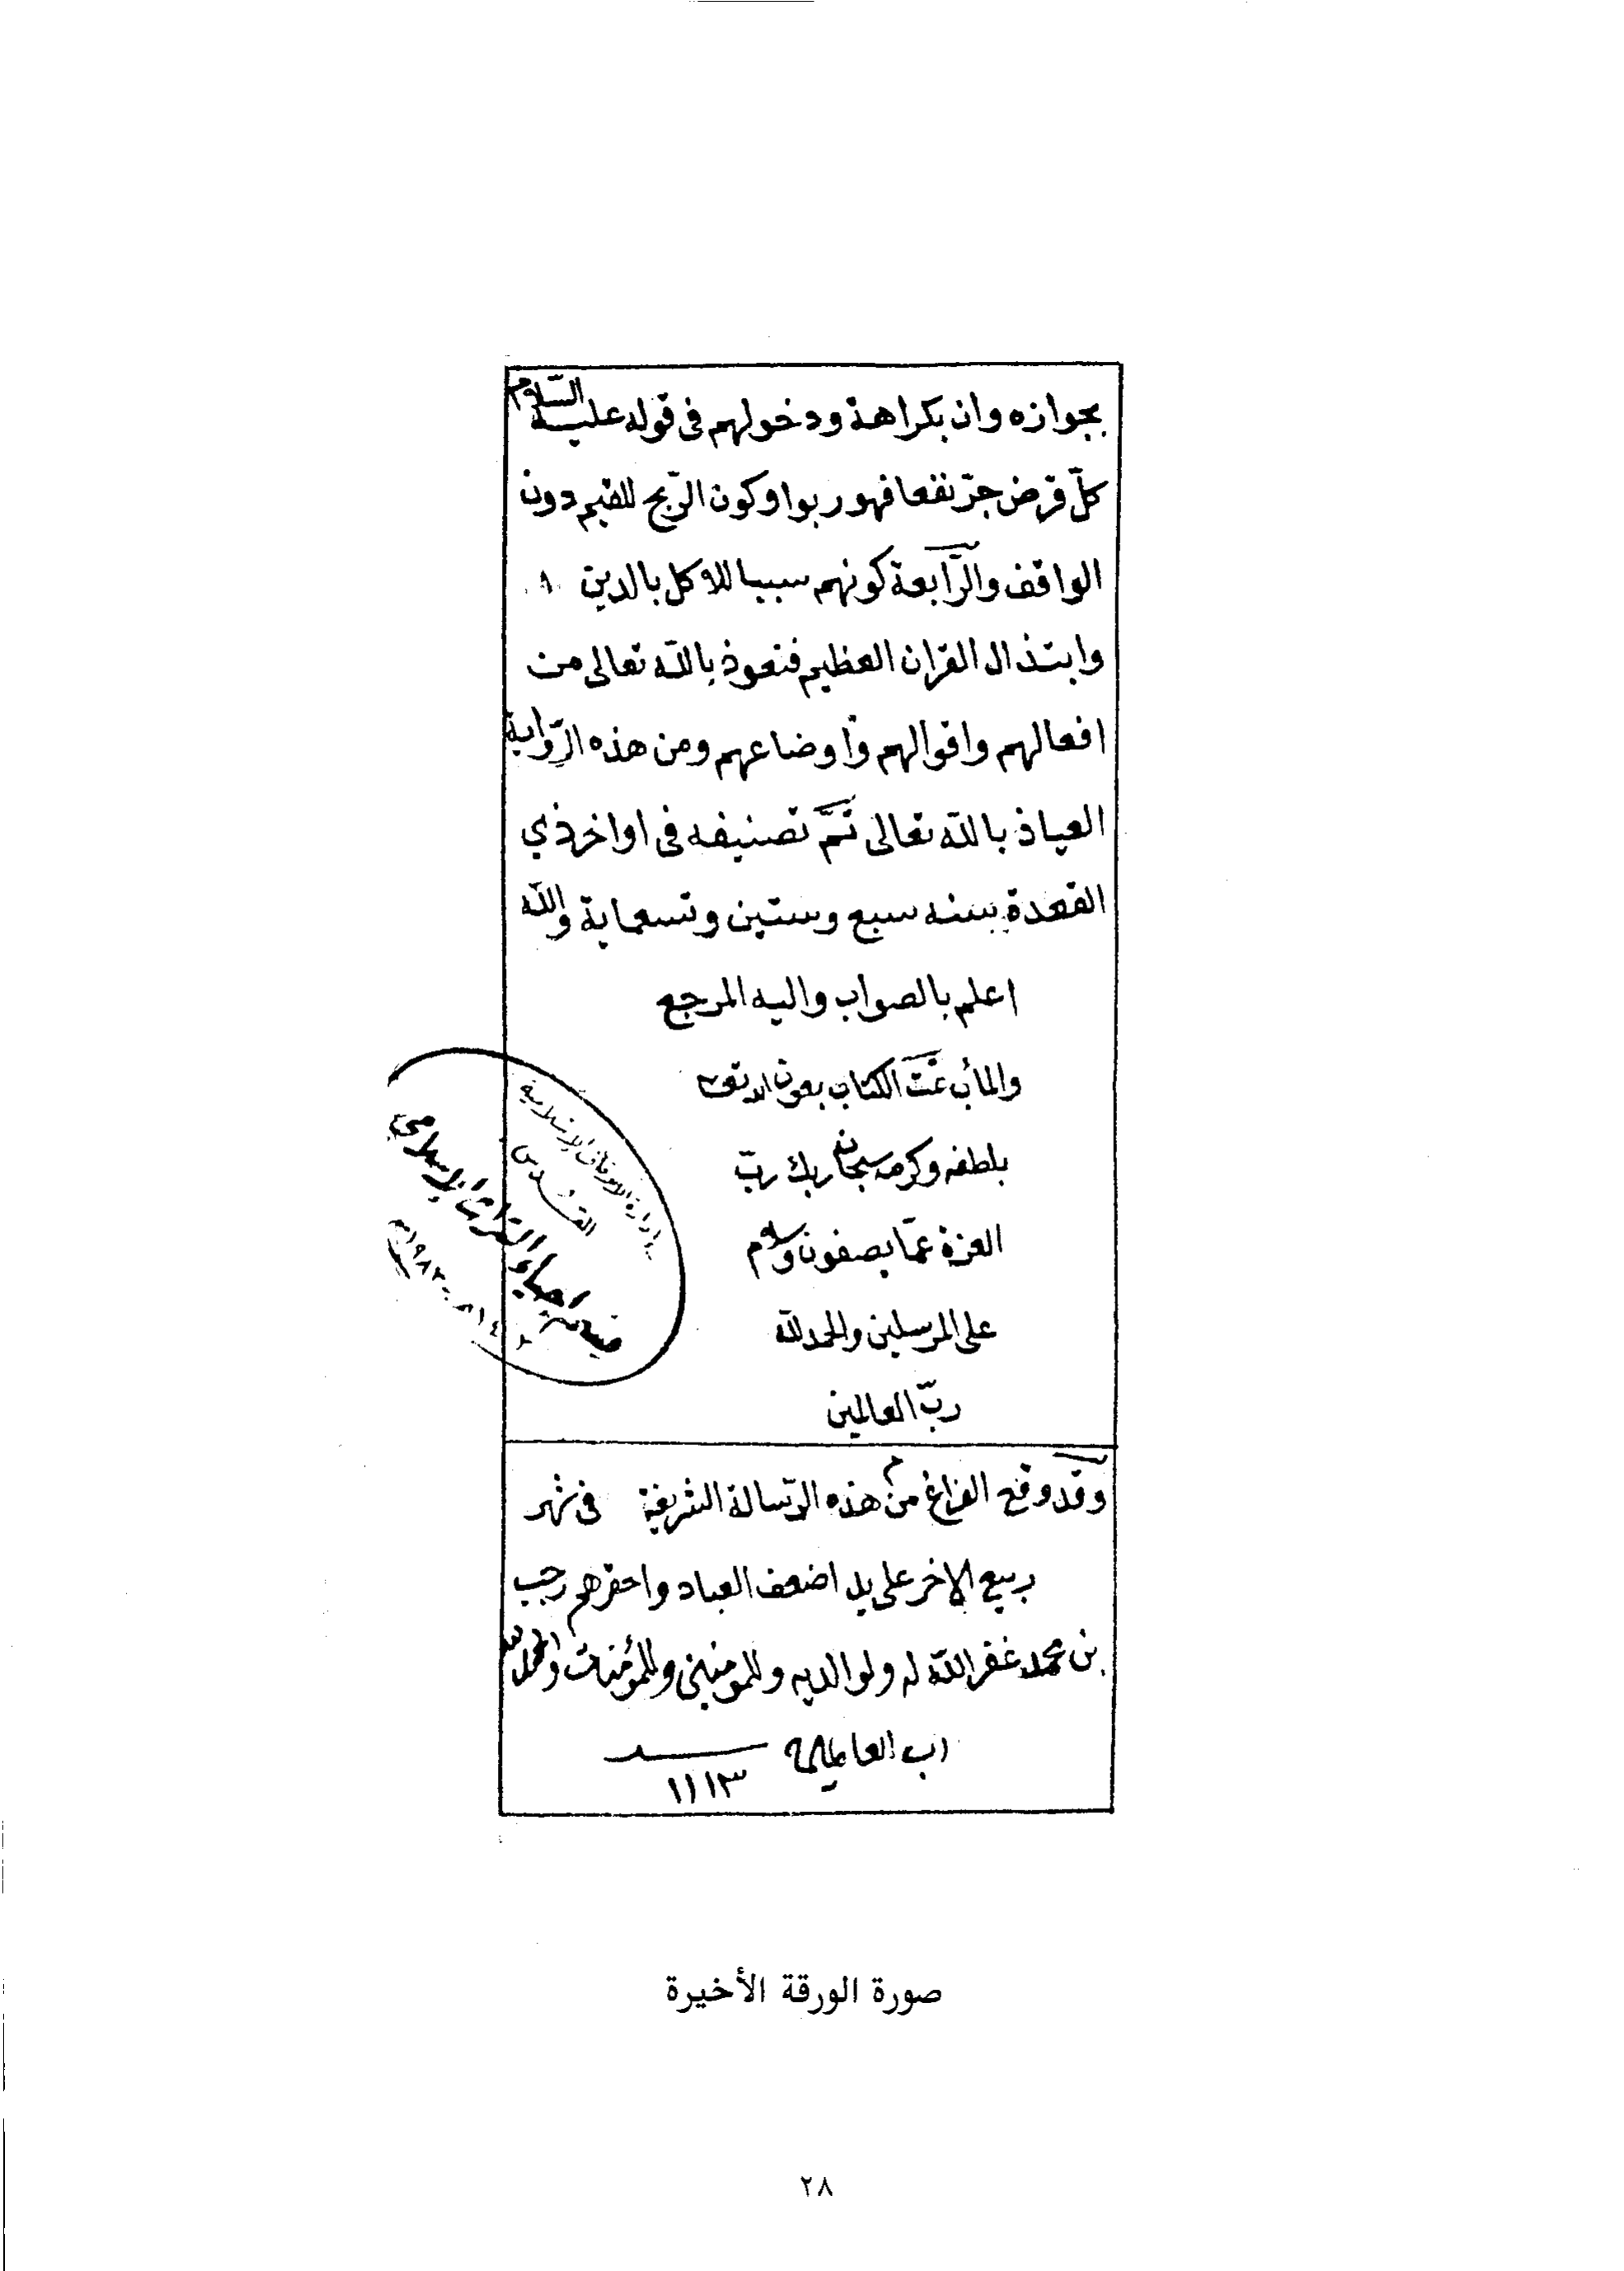 بجوازه وان بكراهة ودخولهم فى قوله عليه السّلام
كلّ قرض جرّ نفعا فهو ربوا وكون الرّبح للقيم دون
الواقف والرّابعة كونهم سببا للاكل بالدين
وابتذال القران العظيم فنعوذ باللّه تعالى من
افعالهم واقوالهم وأوضاعهم ومن هذه الرّواية
العياذ باللّه تعالى تمّ تصنيفه فى اواخر ذي
القعدة سنه سبع وستين وتسعماية واللّه
اعلم بالصواب واليه المرجع
والمأب تمت الكتاب بعون الله تعالى
بلطفه وكرمه سبحان ربك ربّ
العزة عمّا يصفون وسلام
على المرسلين والحمد للّه
ربّ العالمين
إدارة الاوقاف الإسلامية
القدس
إحياء التراث الإسلامي
وقد وقع الفراغ من هذه الرّسالة الشريفة فى شهر
ربيع الاخر على يد اضعف العباد واحقرهم رجب
بن محمد غفر اللّه له ولوالديه وللمومنين وللمؤمنات والحمد لله
رب العالمين
١١١٣
صورة الورقة الأخيرة
٢٨